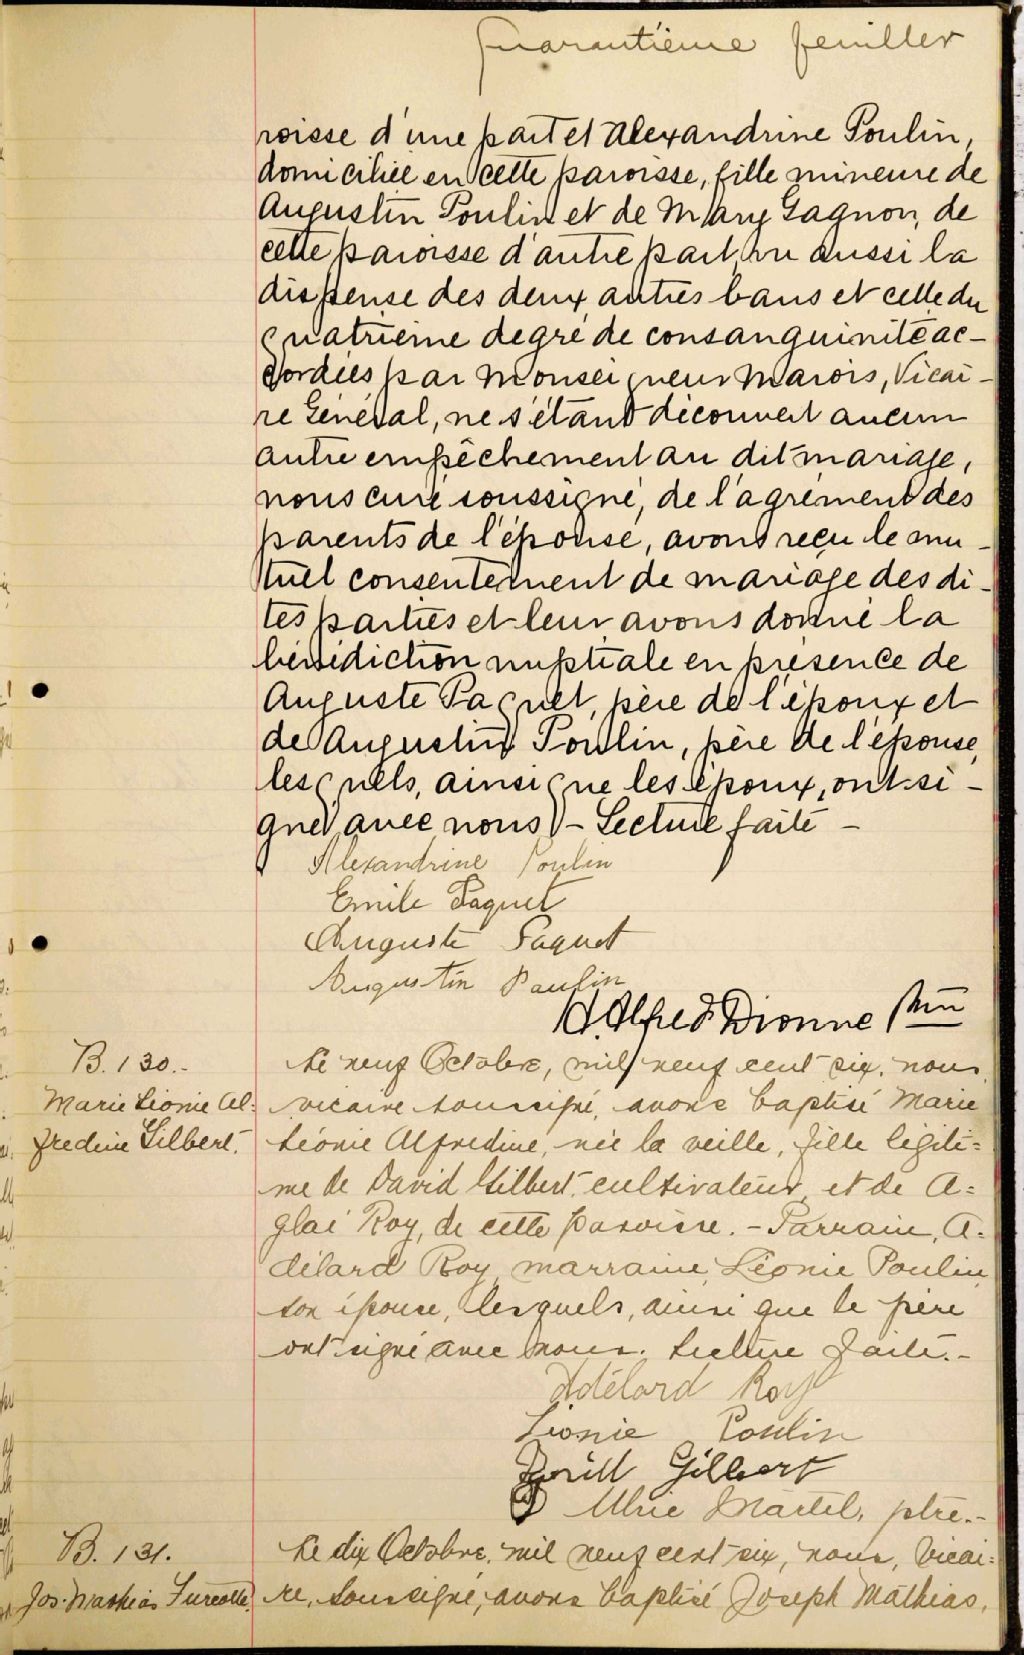 quarantième feuillet
roisse d'une part et Alexandrine Poulin,
domiciliée en cette paroisse, fille mineure de
Augustin Poulin et de Mary Gagnon, de
cette paroisse d'autre part, vu aussi la
dispense des deux autres bans et celle du
quatrième degré de consanguinité ac-
cordées par Monseigneur Marois, Vicai-
re Général, ne s'étant découvert aucun
autre empêchement au dit mariage,
nous curé soussigné, de l'agrément des
parents de l'épouse, avons reçu le mu-
tuel consentement de mariage des di-
tes parties et leur avons donné la
bénédiction nuptiale en présence de
Auguste Paquet, père de l'époux et
de Augustin Poulin, père de l'épouse,
lesquels, ainsi que les époux, ont si-
gné avec nous - Lecture faite -
Alexandrine Poulin
Emile Paquet
Auguste Paquet
Augustin Poulin
H. Alfred Dionne Ptre
B. 130.-
Marie Léonie Al=
fredine Gilbert.
Le neuf Octobre, mil neuf cent six, nous,
vicaire soussigné, avons baptisé Marie
Léonie Alfredine, née la veille, fille légiti=
me de David Gilbert, cultivateur, et de A=
glaé Roy, de cette paroisse. - Parrain, A=
délard Roy, marraine, Léonie Poulin,
son épouse, lesquels, ainsi que le père
ont signé avec nous. Lecture faite.-
Adélard Roy
Léonie Poulin
Gilbert
Martel, ptre.-
B. 131.
Jos. Mathias Turcotte.
Le dix Octobre, mil neuf cent six, nous, Vicai=
re, soussigné, avons baptisé Joseph Mathias,